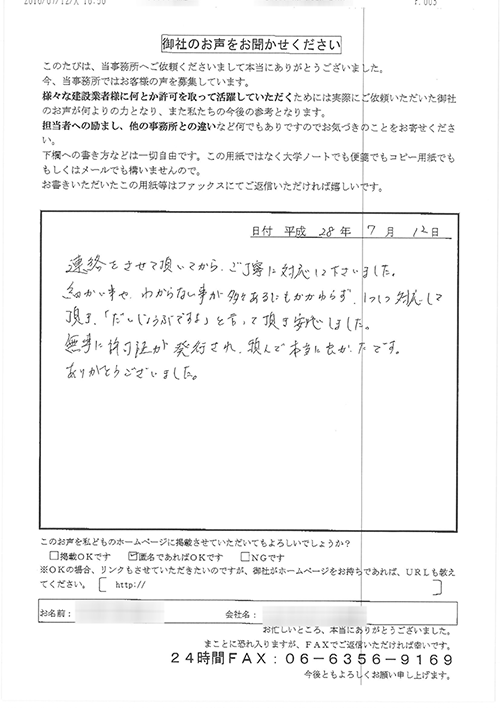 2016/07/12/火 16:30 P.003
御社のお声をお聞かせください
このたびは、当事務所へご依頼くださいまして本当にありがとうございました。
今、当事務所ではお客様の声を募集しています。
様々な建設業者様に何とか許可を取って活躍していただくためには実際にご依頼いただいた御社
のお声が何よりの力となり、また私たちの今後の参考となります。
担当者への励まし、他の事務所との違いなど何でもありですのでお気づきのことをお寄せくださ
い。
下欄への書き方などは一切自由です。この用紙ではなく大学ノートでも便箋でもコピー用紙でも
もしくはメールでも構いませんので。
お書きいただいたこの用紙等はファックスにてご返信いただければ嬉しいです。
日付 平成 28 年 7 月 12 日
連絡をさせて頂いてから、ご丁寧に対応して下さいました。
細かい事や、わからない事が多々あるにもかかわらず、1つ1つ対応して
頂き、「だいじょうぶですよ」と言って頂き安心しました。
無事に許可証が発行され、頼んで本当に良かったです。
ありがとうございました。
このお声を私どものホームページに掲載させていただいてもよろしいでしょうか？
□掲載OKです ☑匿名であればOKです □NGです
※OKの場合、リンクもさせていただきたいのですが、御社がホームページをお持ちであれば、URLも教え
てください。 [ http:// ]
お名前： 会社名：
お忙しいところ、本当にありがとうございました。
まことに恐れ入りますが、FAXでご返信いただければ幸いです。
24時間FAX：06-6356-9169
今後ともよろしくお願い申し上げます。